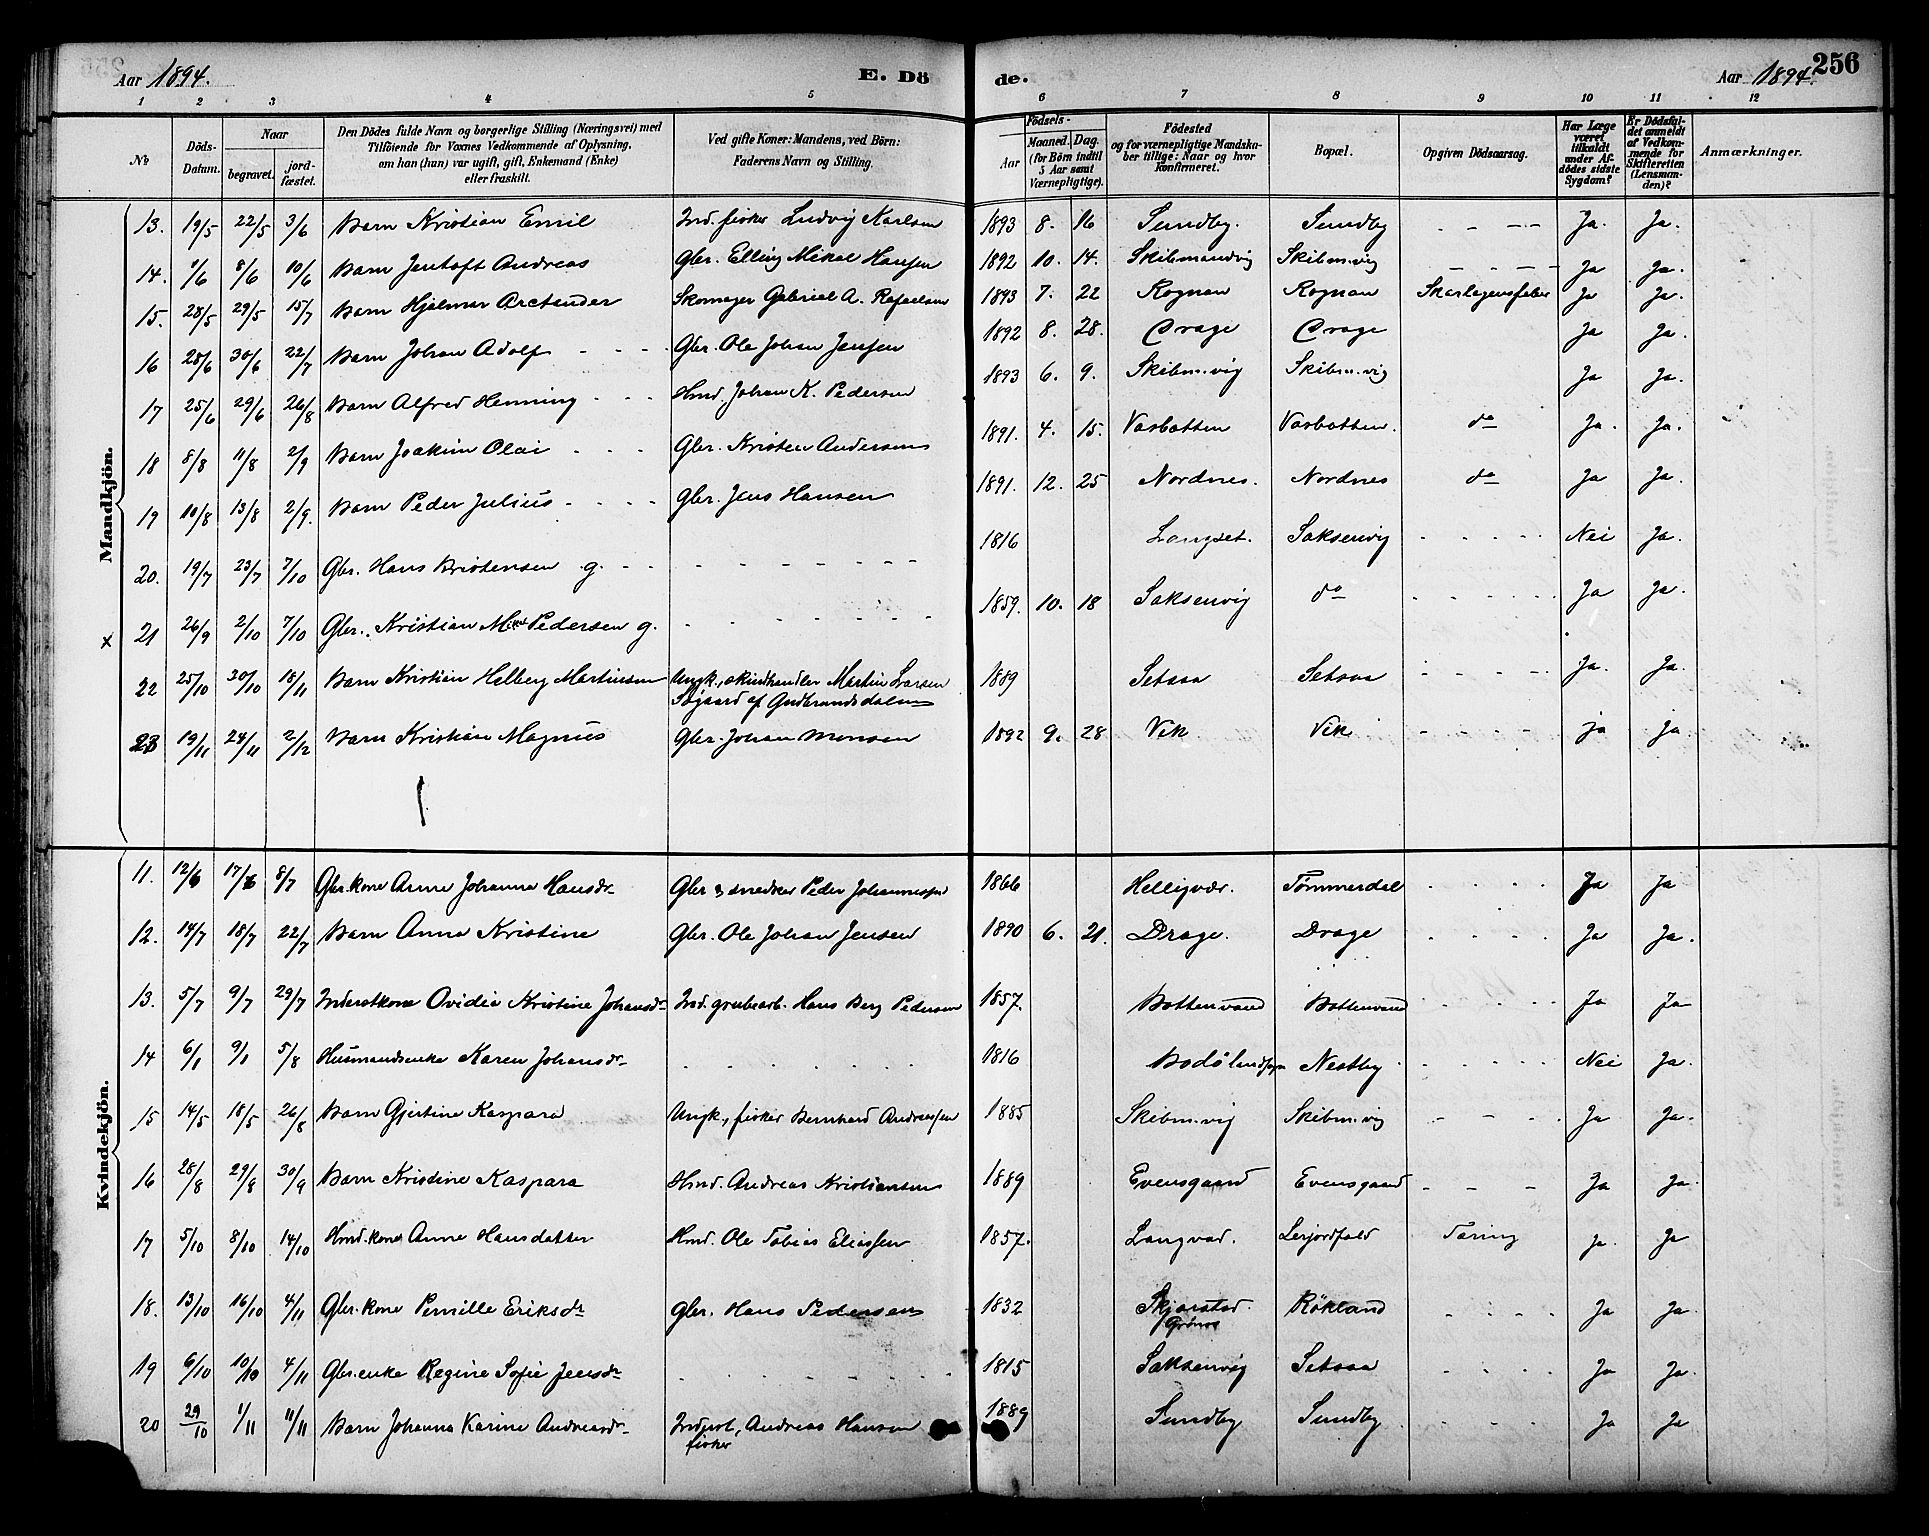 Aar 1894. E. Dö de. Aar 1894. 256
1 2 3 4 5 6 7 8 9 10 11 12
No Döds-Datum. Naar begravet. jordfæstet. Den Dödes fulde Navn og borgerlige Stilling (Næringsvei) med Tilföiende for Voxnes Vedkommende af Oplysning, om han (hun) var ugift, gift, Enkemand (Enke) eller fraskilt. Ved gifte Koner: Mandens, ved Börn: Faderens Navn og Stilling. Födsels- Aar Maaned. Dag. (for Börn indtil 5 Aar samt Værnepligtige). Födested og for værnepligtige Mandskaber tillige: Naar og hvor konfirmeret. Bopæl. Opgiven Dödsaarsag. Har Læge været tilkaldt under Afdödes sidste Sygdom? Er Dödsfaldet anmeldt af Vedkommende for Skifteretten (Lensmanden)? Anmærkninger.
Mandkjön.
13. 19/5 22/5 3/6 Barn Kristian Emil Ind. fisker Ludvig Karlsen 1893 8. 16 Sundby. Sundby - - - - Ja. Ja.
14. 1/6 8/6 10/6 Barn Jentoft Andreas Gbr. Elling Mikal Hansen 1892 10. 14. Skibmandvig Skibm.vig - - - - Ja Ja.
15. 28/5 29/5 15/7 Barn Hjalmar Arctander Skomager Gabriel A. Rafaelsen 1893 7. 22 Rognan Rognan Skarlagensfeber Ja Ja.
16 25/6 30/6 22/7 Barn Johan Adolf - - - - Gbr. Ole Johan Jensen 1892 8. 28. Drage Drage Ja Ja.
17 25/6 29/6 26/8 Barn Alfred Henning - - - Hmd. Johan K. Pedersen 1893 6. 9. Skibm.vig Skibm.vig Ja Ja.
18 8/8 11/8 2/9 Barn Joakim Olai - - - Gbr. Kristen Andersen 1891. 4. 15. Vasbotten Vasbotten. do Ja. Ja.
19 10/8 13/8 2/9. Barn Peder Julius - - - - Gbr. Jens Hansen 1891. 12. 25 Nordnes. Nordnes do Ja Ja.
20. 19/7 23/7 7/10 Gbr. Hans Kristensen g. - - - - - - - - - 1816 Langset. Saksenvig - - - - - Nei Ja.
x 21 26/9 2/10 7/10 Gbr. Kristian Mikal Pedersen g. - - - - - - - 1859. 10. 18 Saksenvig do - - - - - Ja Ja.
22 25/10 30/10 18/11 Barn Kristian Helberg Martinsen Ungk., skindhandler Martin Larsen 1889 Setsaa Setsaa - - - - - Ja. Ja.
Søgaard af Gudbrandsdalen
23 19/11 24/11 2/12 Barn Kristian Magnus Gbr. Johan Monsen 1892 9. 28 Vik Vik - - - - - ja ja.
Kvindekjön.
11. 12/6 17/6 8/7 Gbr.kone Anne Johanna Hansdr Gbr & snedker Peder Johannessen 1866 Helligvær. Tømmerdal - - - - Ja Ja
12. 14/7 18/7 22/7 Barn Anna Kristine Gbr. Ole Johan Jensen 1890 6. 21. Drage. Drage - - - - Ja Ja.
13. 5/7 9/7 29/7 Inderstkone Ovidia Kristine Johansdr Ind. grubearb. Hans Berg Pedersen 1857. Bottenvand Bottenvand - - - - Ja Ja
14 6/1 9/1 5/8 Husmandsenke Karen Johansdr - - - - - - - 1816 Bodö landsogn Nestby - - - - - Nei Ja.
15 14/5 18/5 26/8 Barn Gjertine Kaspara Ungk., fisker Bernhard Andreassen 1885 Skibm.vig Skibm.vig - - - - Ja Ja.
16 28/8 29/8 30/9 Barn Kristine Kaspara Hmd. Andreas Kristiansen 1889 Evensgaard Evensgaard - - - Ja Ja.
17 5/10 8/10 14/10 Hmd.kone Anne Hansdatter Hmd. Ole Tobias Eliassen 1857. Langvad. Lerjordfald Tæring ja. Ja
18. 13/10 16/10 4/11 Gbr.kone Pernille Eriksdr Gbr. Hans Pedersen 1832 Skjerstad. Røkland - - - - Ja Ja.
Grönaas
19 6/10 10/10 4/11 Gbr.enke Regine Sofie Jensdr - - - - - - - 1815 Saksenvig Setsaa - - - - Ja Ja.
20 29/10 1/11 11/11 Barn Johanna Karine Andreasdr Inderst, Andreas Hansen 1889 Sundby Sundby - - - - Ja Ja
fisker